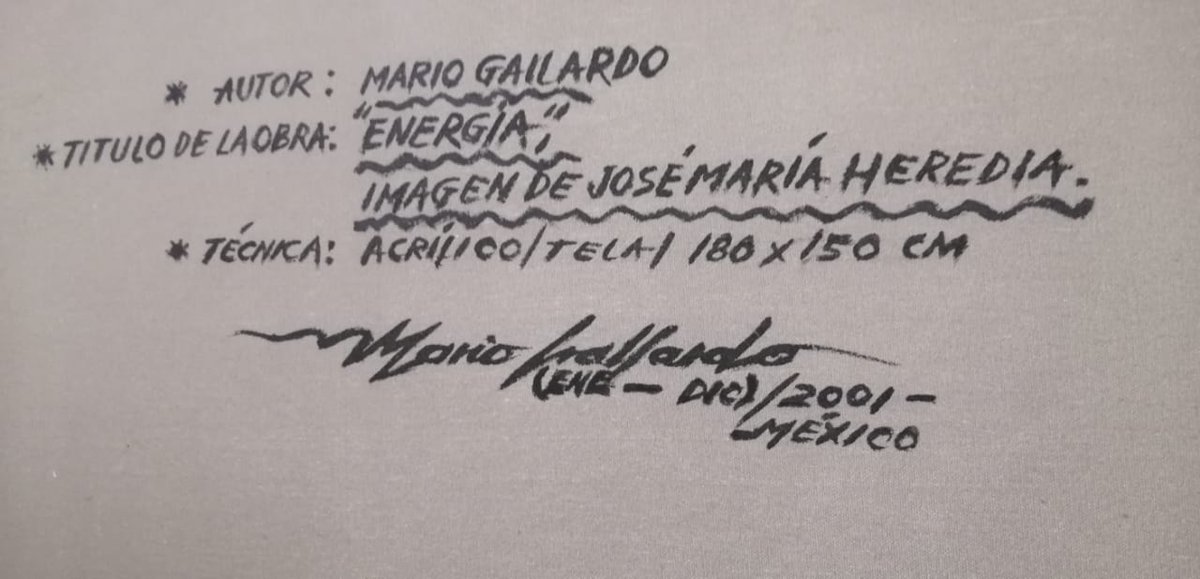 * AUTOR: MARIO GALLARDO
* TITULO DE LA OBRA: "ENERGÍA,"
IMAGEN DE JOSÉ MARÍA HEREDIA.
* TÉCNICA: ACRÍLICO/TELA/ 180 X 150 CM
Mario Gallardo
(ENE - DIC)/2001-
-MÉXICO